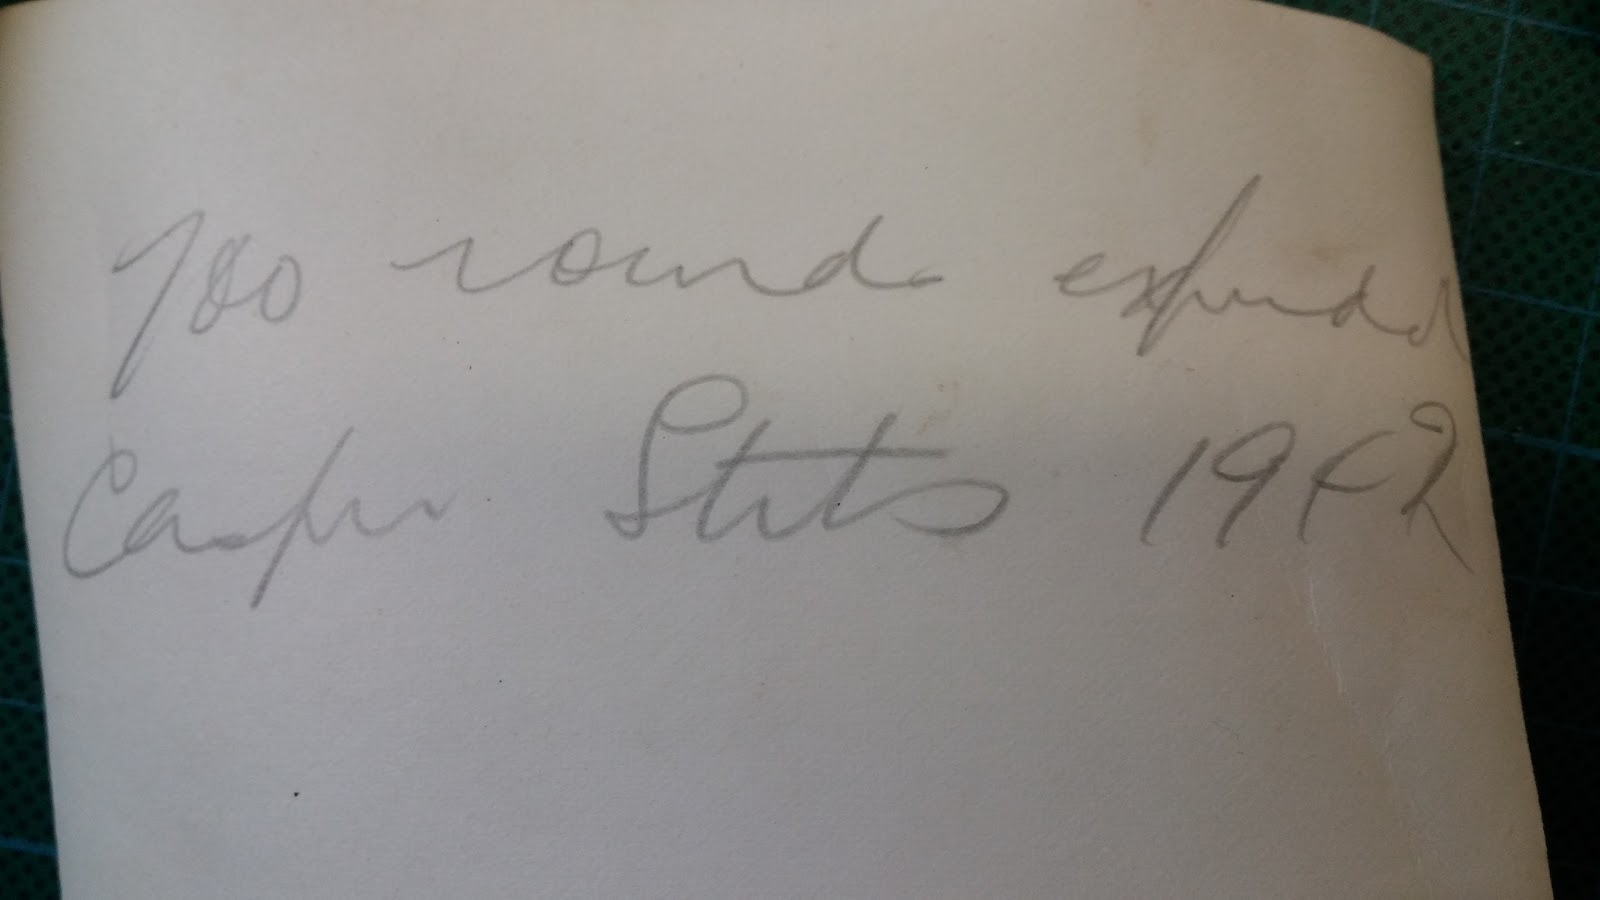 700 rounds expended
Casper Strts 1942